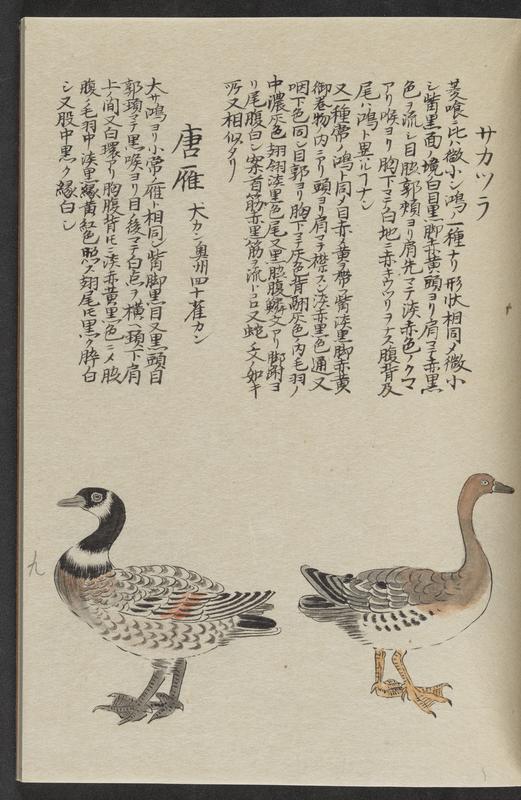 サカツラ
菱喰ニ比ハ微小シ鴻ノ一種ナリ形状相同メ微小
シ觜黒面ノ境白目黒脚赤黄頭ヨリ肩マテ赤黒
色ヲ流シ目 郭頬ヨリ肩先マテ淡赤色ノクマ
アリ喉ヨリ胸下マテ白地ニ赤キウツリヲナス腹背及
尾ハ鴻ト異ルナシ
又一種常ノ鴻ト同メ目赤メ黄ヲ帯フ觜淡黒脚赤黄
御巻物ノ内ニアリ頭ヨリ肩マテ 淡赤黒色通又
咽下色同シ目郭ヨリ胸下マテ灰色背 灰色ノ内毛羽ノ
中濃灰色翅 淡黒色尾又黒 腹鱗文アリ脚 ヨ
リ尾腹白シ案首筋赤黒筋ヲ流ト 又蛇 文ノ如キ
所又相似タリ
唐雁 大カン奥州四十雀カン
大サ鴻ヨリ小常ノ雁ト相同シ觜脚黒目又黒頭目
郭頚マテ黒喉ヨリ目ノ後マテ白点ヲ横ヘ頚ノ下肩
上ノ間又白環アリ胸腹背ニ淡赤黄黒色ニメ
腹ノ毛羽中淡黒縁黄紅色 翅尾 黒ク 白
シ又股中黒ク縁白シ
九